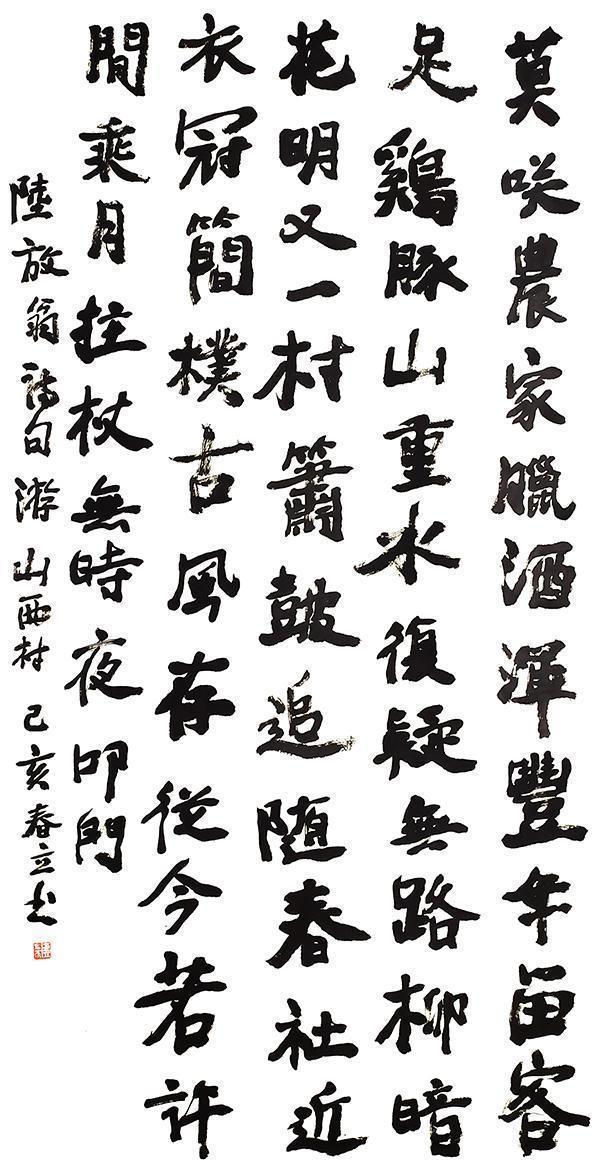 莫咲農家臘酒渾豐年畱客
足鷄豚山重水復疑無路柳暗
花明又一村簫鼓追随春社近
衣冠簡樸古風存從今若許
閒乘月拄杖無時夜叩門
陸放翁詩句游山西村己亥春立书